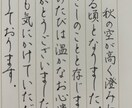 秋の空が高く澄み
る頃となりました
のことと存じます
たびは温かなお心
がとうございまし
も気にかけていただ
ております。